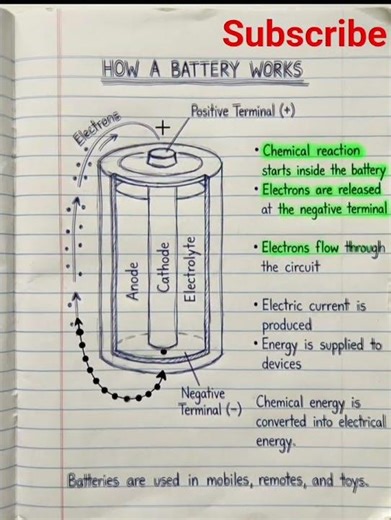 Subscribe
HOW A BATTERY WORKS
Positive Terminal (+)
Electrons
+
• Chemical reaction
starts inside the battery
• Electrons are released
at the negative terminal
• Electrons flow through
the circuit
• Electric current is
produced
• Energy is supplied to
devices
Anode
Cathode
Electrolyte
Negative
Terminal (-)
Chemical energy is
converted into electrical
energy.
Batteries are used in mobiles, remotes, and toys.